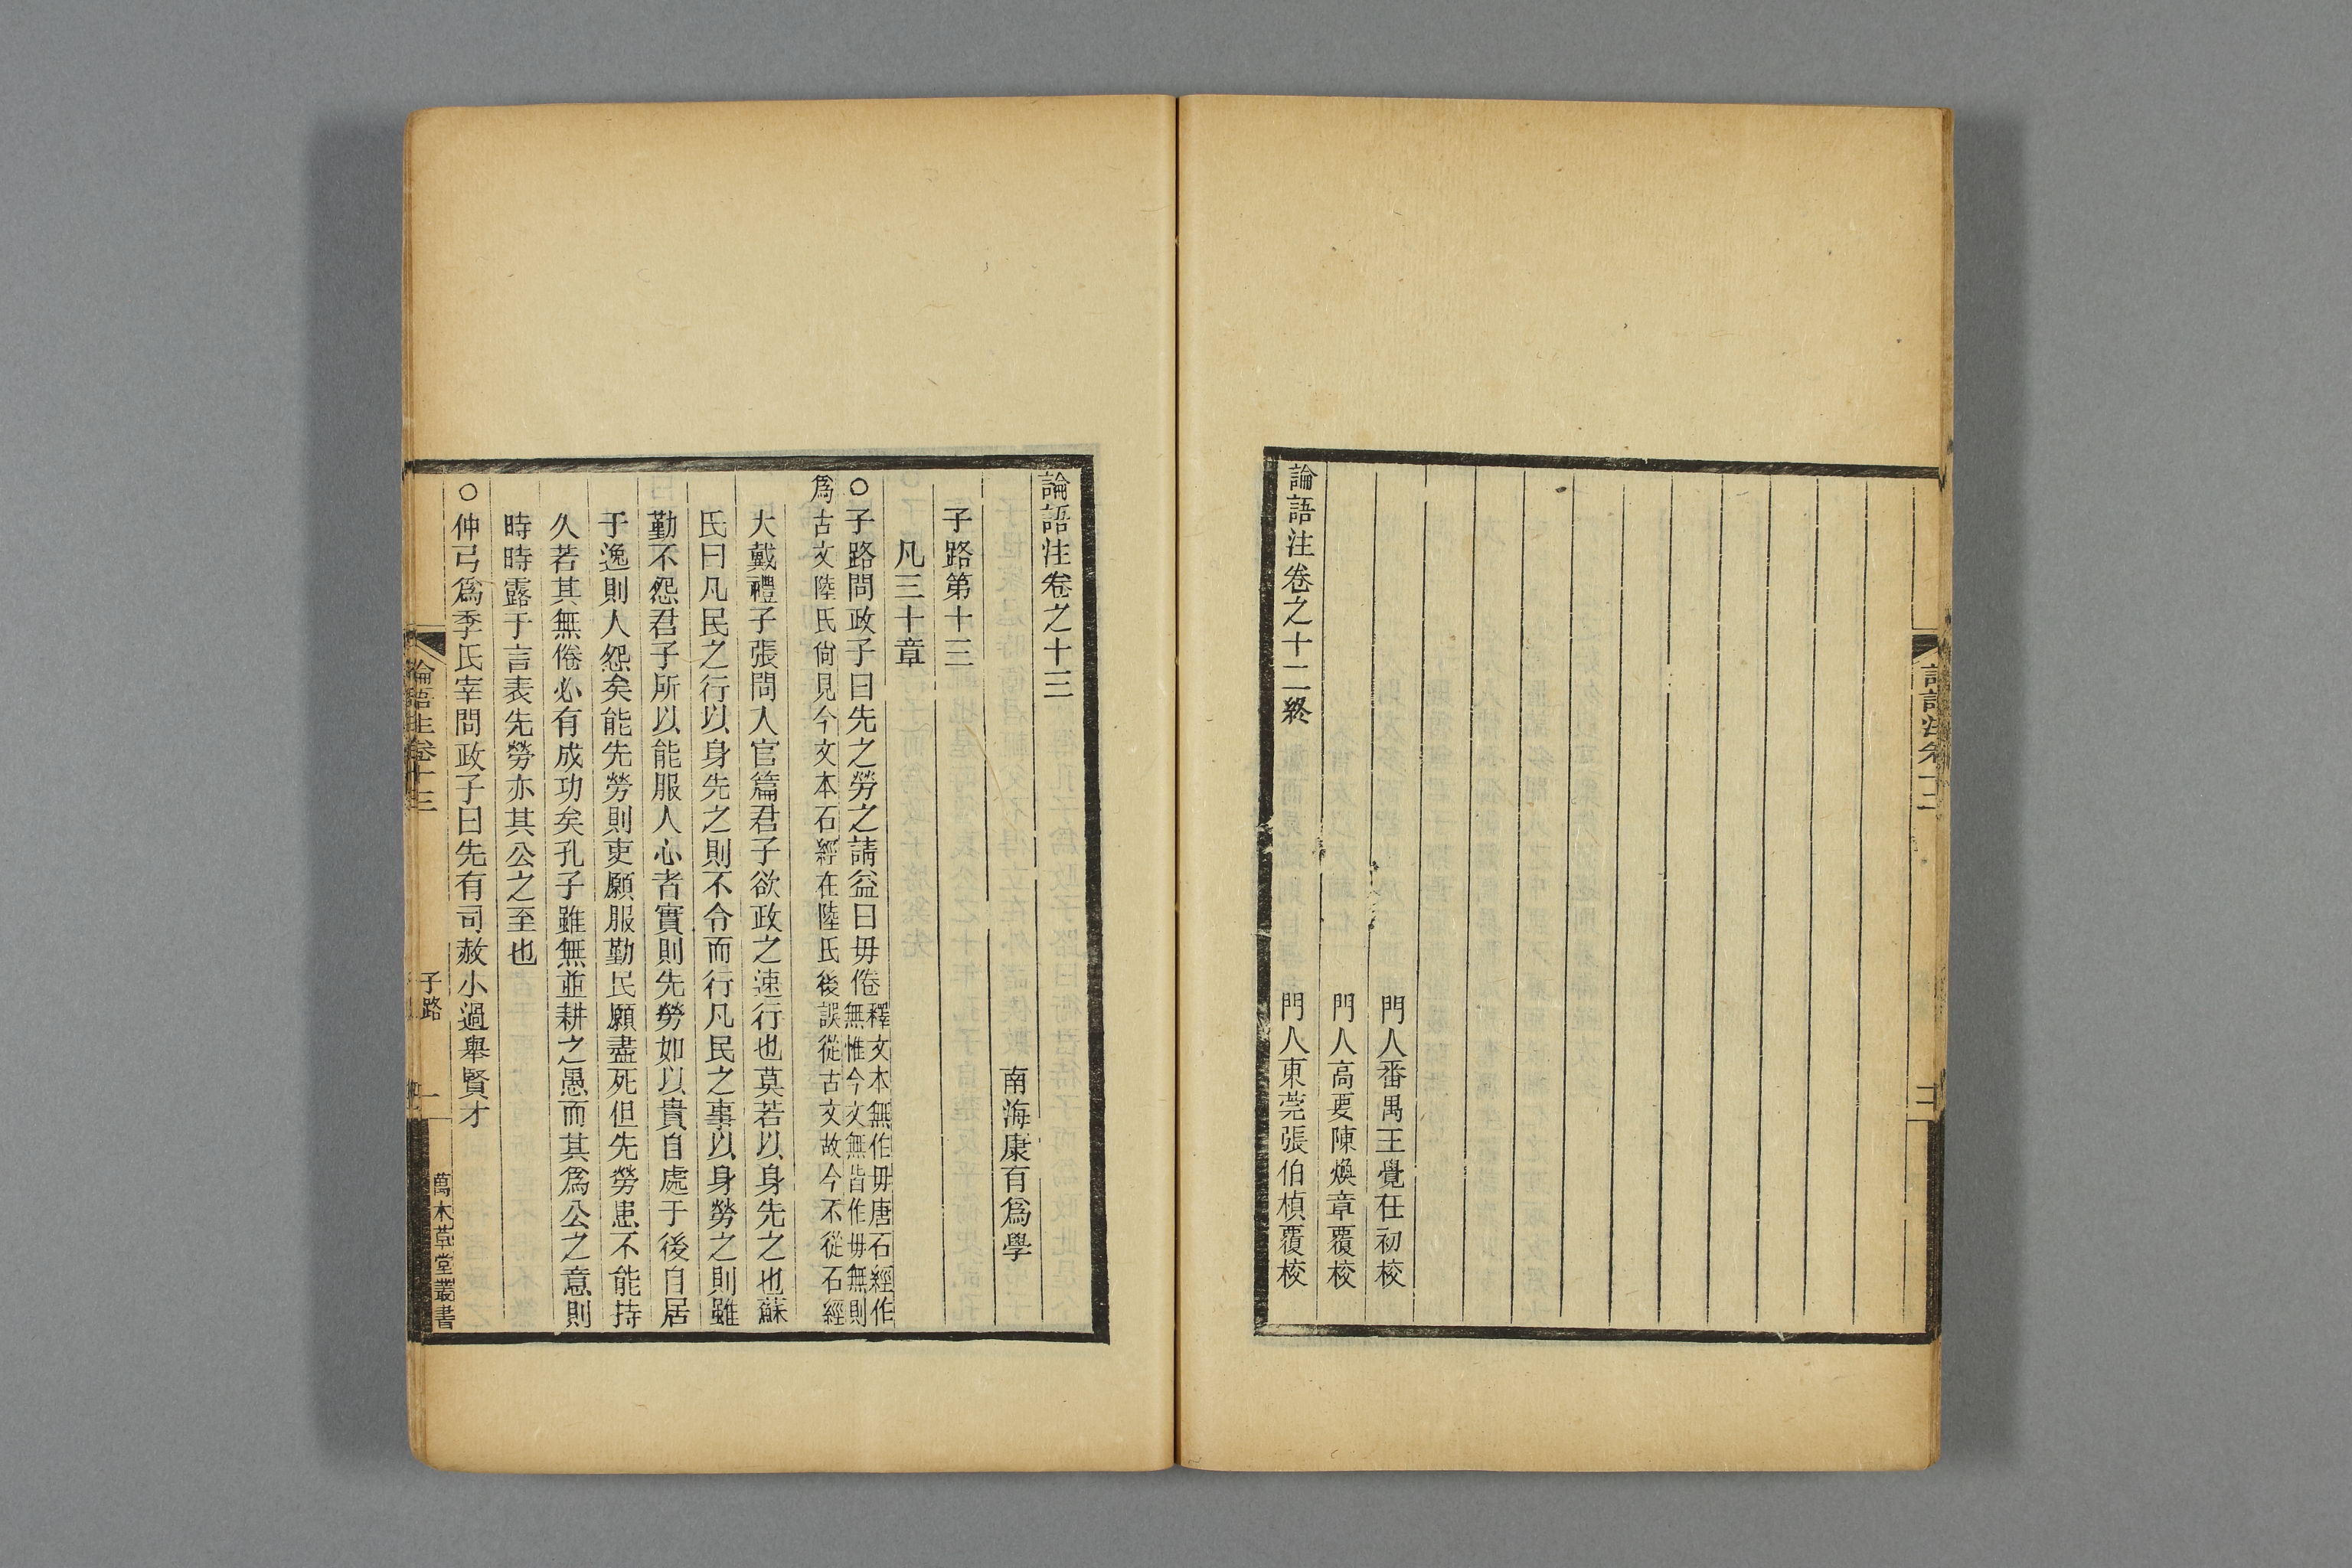 門人番禺王覺任初校
門人高要陳煥章覆校
門人東莞張伯楨覆校
論語注卷之十二終
論語注卷之十三
南海康有爲學
子路第十三
凡三十章
○子路問政子曰先之勞之請益曰毋倦釋文本無作毋唐石經作
無惟今文無皆作毋無則
爲古文陸氏尙見今文本石經在陸氏後誤從古文故今不從石經
大戴禮子張問入官篇君子欲政之速行也莫若以身先之也蘇
氏曰凡民之行以身先之則不令而行凡民之事以身勞之則雖
勤不怨君子所以能服人心者實則先勞如以貴自處于後自居
于逸則人怨矣能先勞則吏願服勤民願盡死但先勞患不能持
久若其無倦必有成功矣孔子雖無並耕之愚而其爲公之意則
時時露于言表先勞亦其公之至也
○仲弓爲季氏宰問政子曰先有司赦小過舉賢才
論語注卷十三
子路
一
萬木草堂叢書